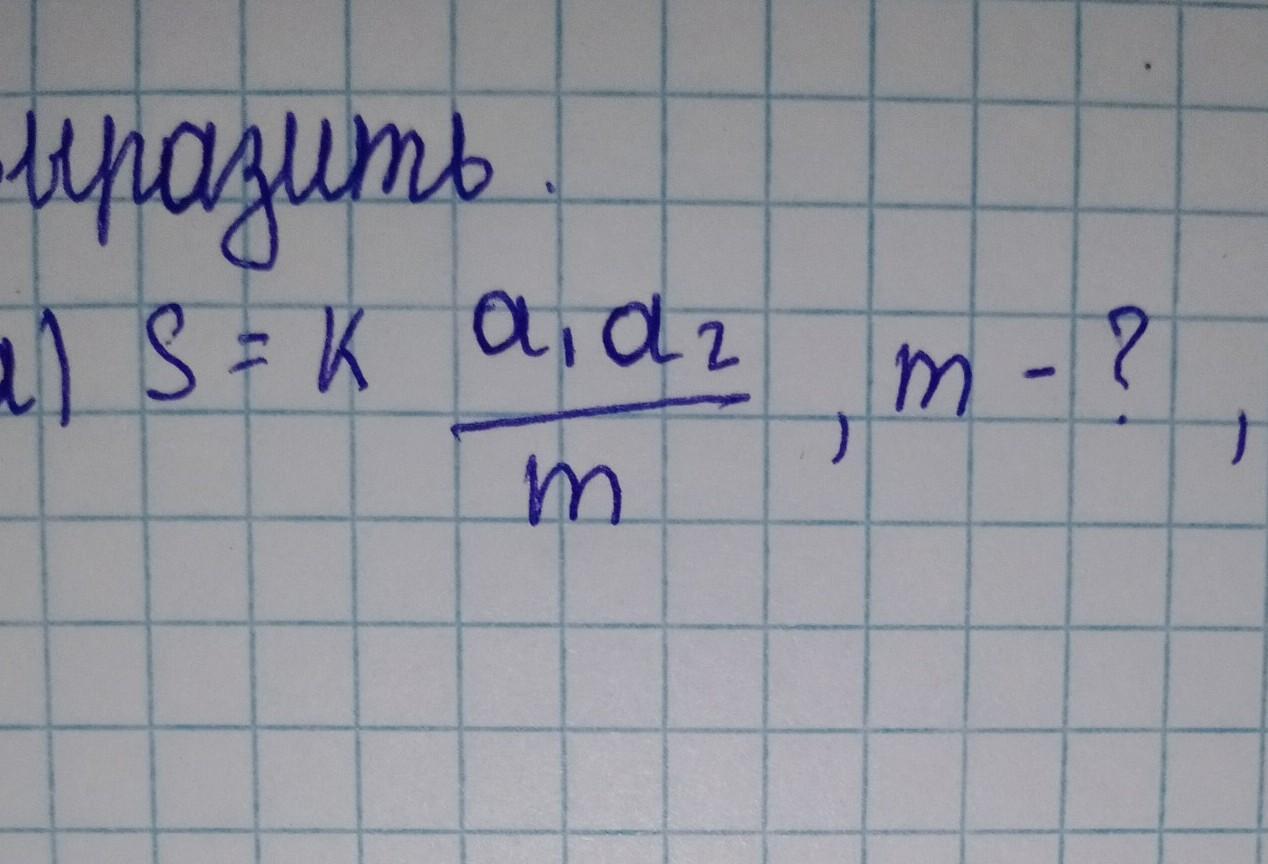 ыразить.
а) S = K a₁a₂ / m , m - ? ,